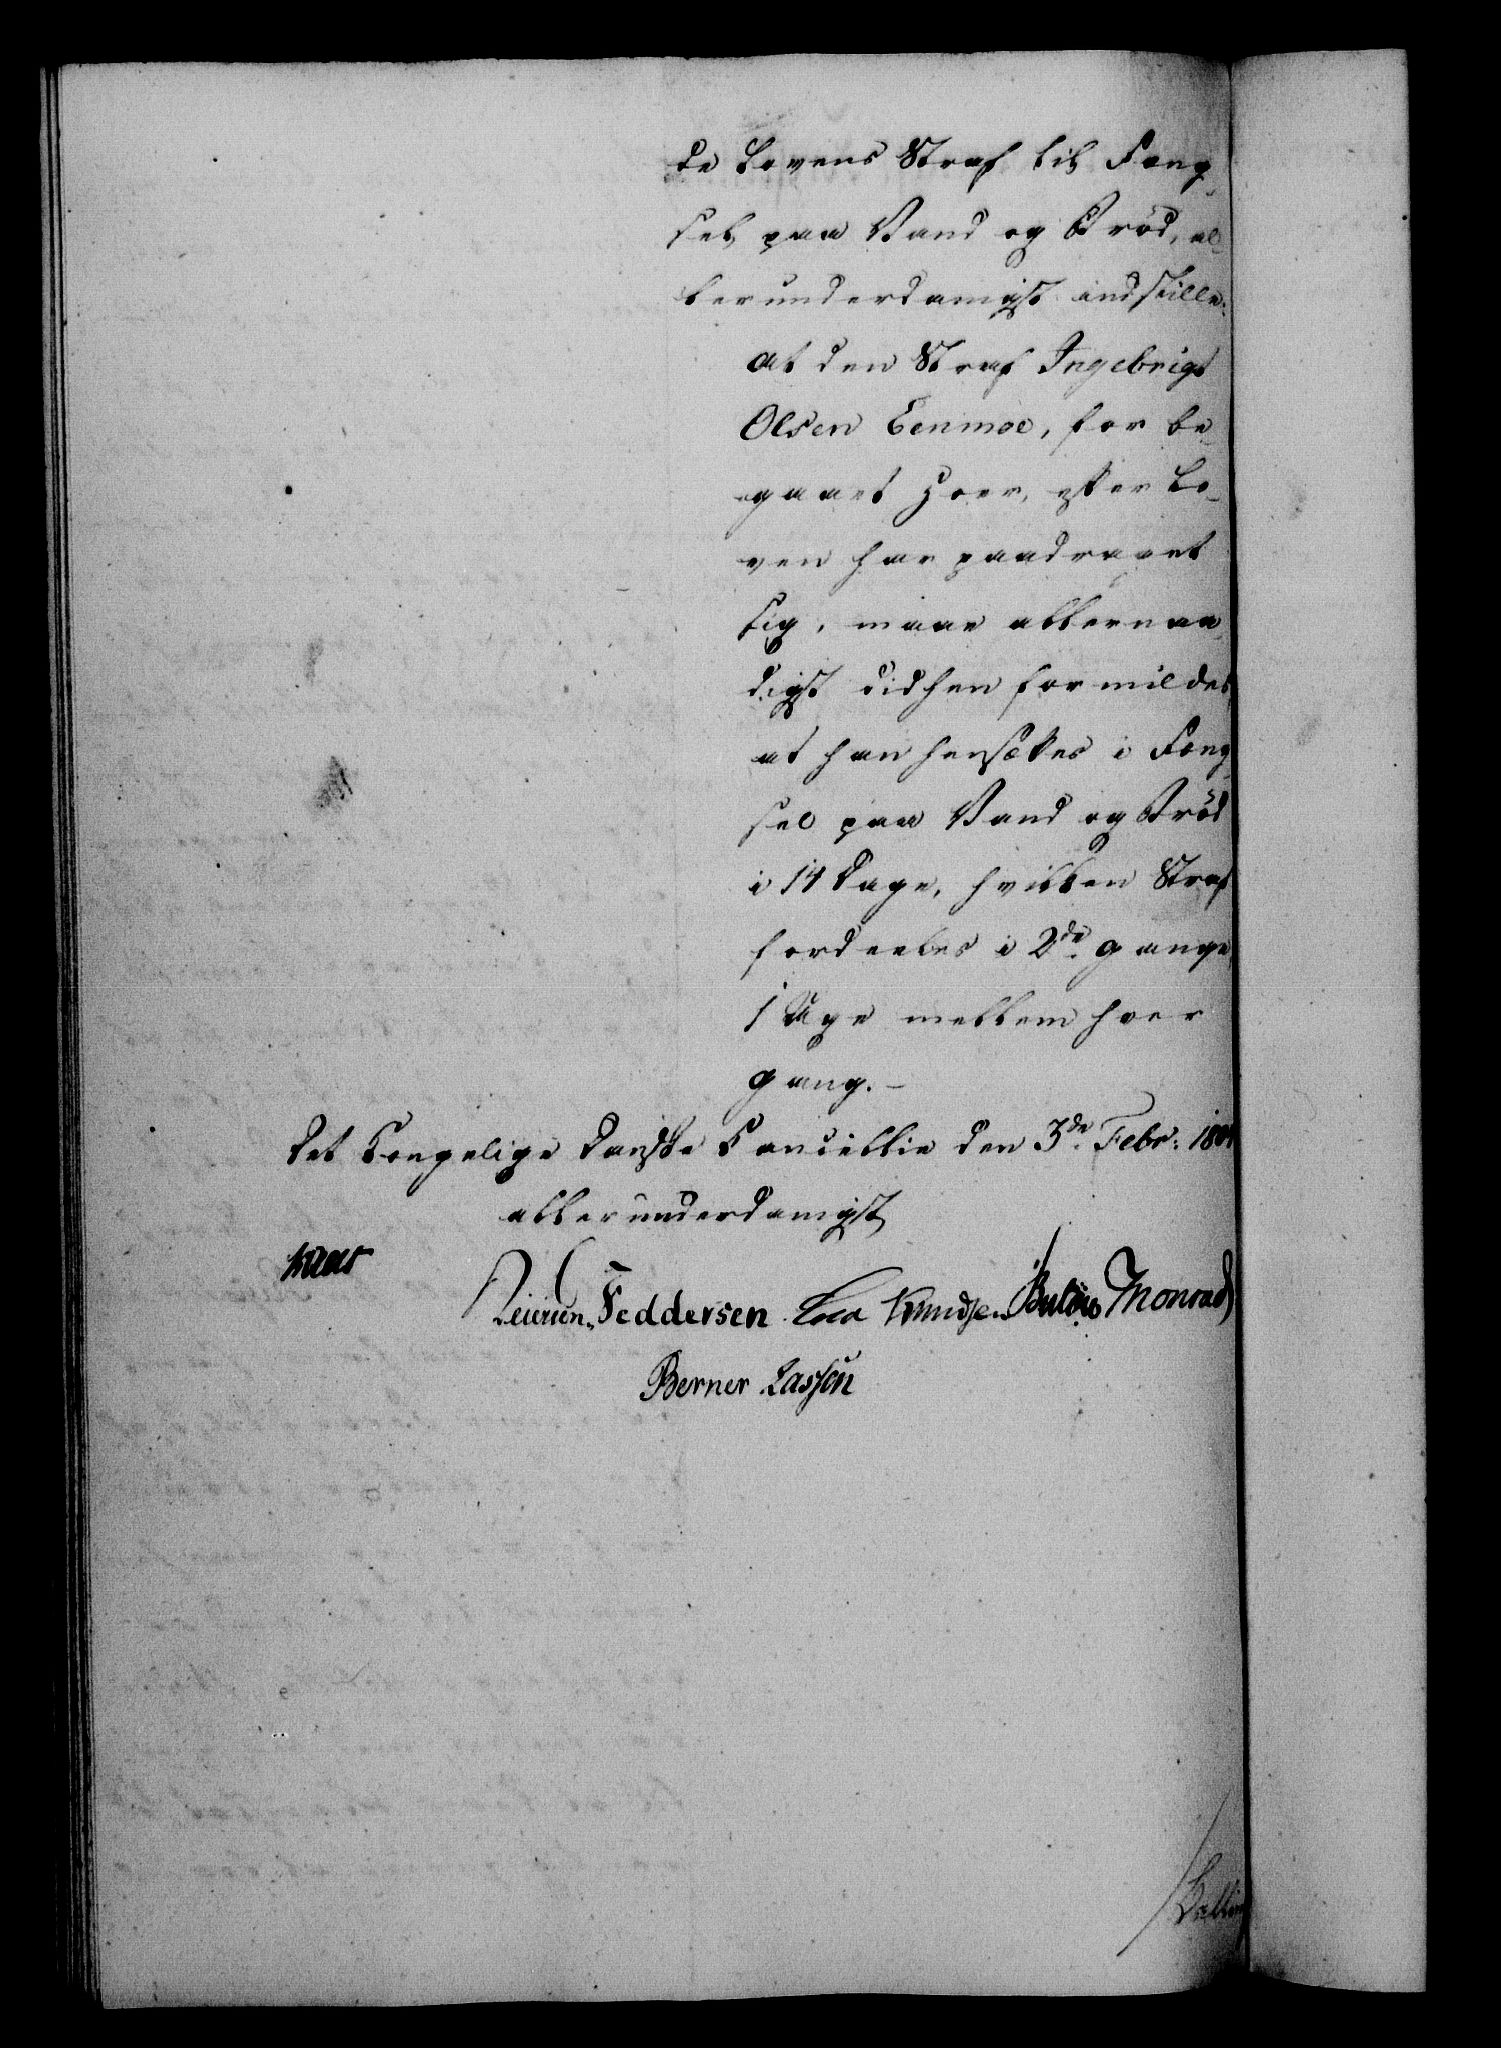 de Lovens Straf til Fæng-
sel paa Vand og Bröd, al-
lerunderdanigst indstille:
at den Straf Ingebrigt
Olsen Eenmoe, for be-
gaaet Hoer, efter Lo-
ven har paadraget
sig, maae allernaa-
digst didhen formildes
at han hensættes i Fæng-
sel paa Vand og Bröd
i 14 Dage, hvilken Straf
fordeeles i 2de gange
1 Uge mellem hver
gang.-
Det Kongelige Danske Cancellie den 3de Febr:
allerunderdanigst
Kaas
Feddersen Knudsen Bülow Monrad
Berner Lassen